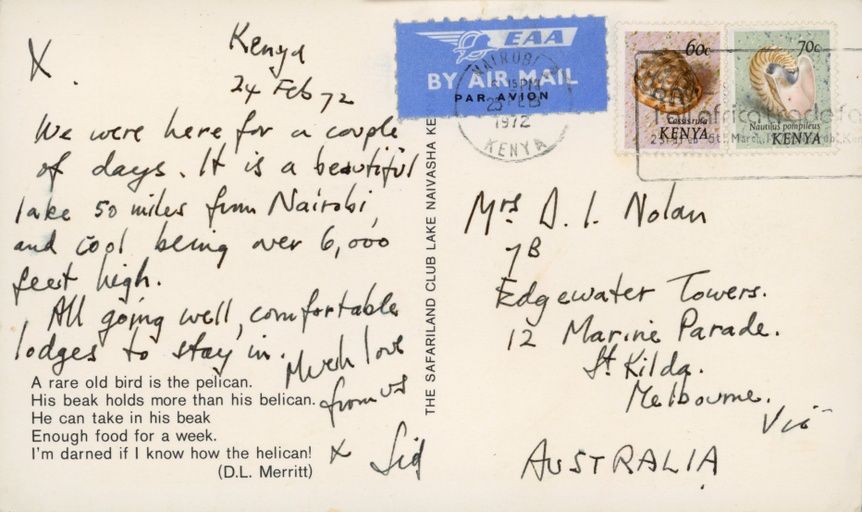 X.
Kenya
24 Feb 72
We were here for a couple
of days. It is a beautiful
lake 50 miles from Nairobi,
and cool being over 6,000
feet high.
All going well, comfortable
lodges to stay in. Much love
from us
x Sid
A rare old bird is the pelican.
His beak holds more than his belican.
He can take in his beak
Enough food for a week.
I'm darned if I know how the helican!
(D.L. Merritt)
THE SAFARILAND CLUB LAKE NAIVASHA KE
EAA
BY AIR MAIL
PAR AVION
NAIROBI
15 PM
1972
KENYA
60c
Cassis rufa
KENYA
70c
Nautilus pompileus
KENYA
Mrs D. I. Nolan
7B
Edgewater Towers.
12 Marine Parade.
St Kilda.
Melbourne.
Vic
AUSTRALIA